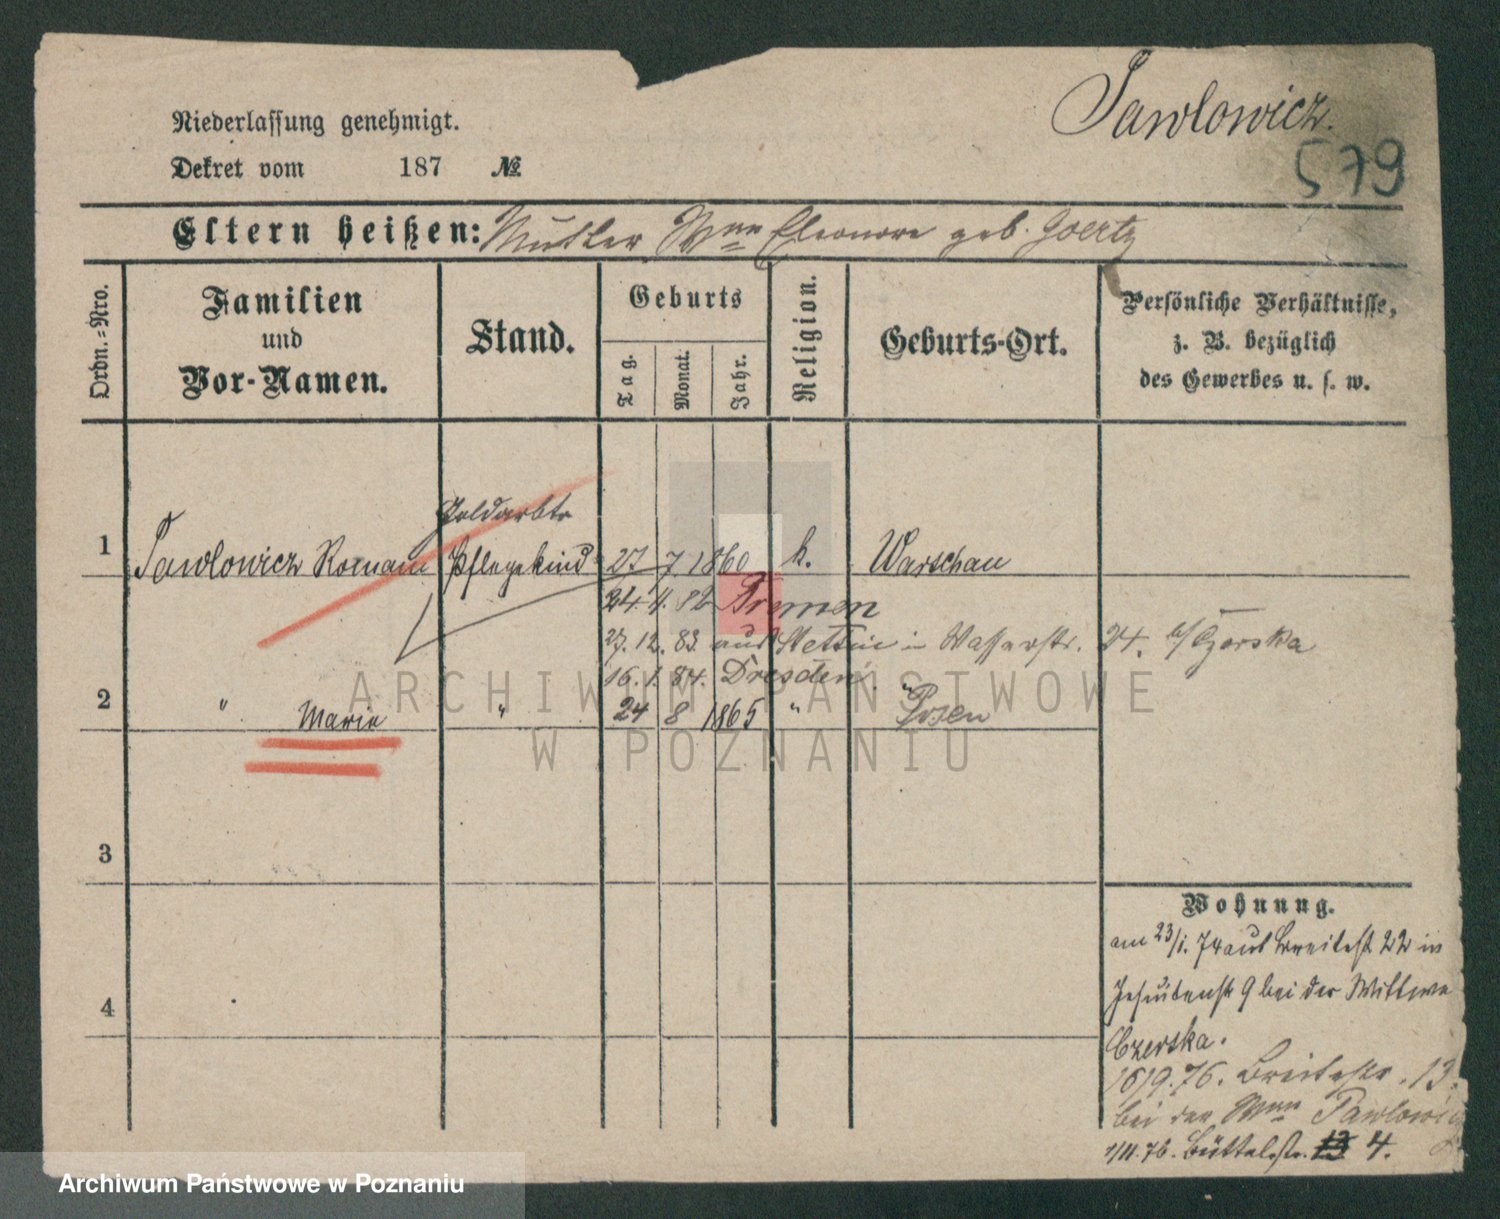 Pawlowicz.
579
Niederlassung genehmigt.
Dekret vom 187 №
Eltern heißen: Mutter Wwe Eleonore geb. Goertz
Ordn.-Nro.
Familien
und
Vor-Namen.
Stand.
Geburts
Tag.
Monat.
Jahr.
Religion.
Geburts-Ort.
Persönliche Verhältnisse,
z. B. bezüglich
des Gewerbes u. s. w.
Goldarbtr
1 Pawlowicz Roman Pflegekind 27 7. 1860 k. Warschau
24. 4. 82 Bremen
27. 12. 83. aus Stettin in Wasserstr. 24. b/ Czerska
16. 1. 84. Dresden
2 " Marie " 24 8 1865 " " Posen
3
4
Wohnung.
am 23/1. 74 aus Breitestr 22 in
Jesuitenstr 9 bei der Wittwe
Czerska.
16/9. 76. Breitestr. 13.
bei der Wwe Pawlowicz
1/11. 76. Büttelstr. 13 4.
ARCHIWUM PAŃSTWOWE
W POZNANIU
Archiwum Państwowe w Poznaniu